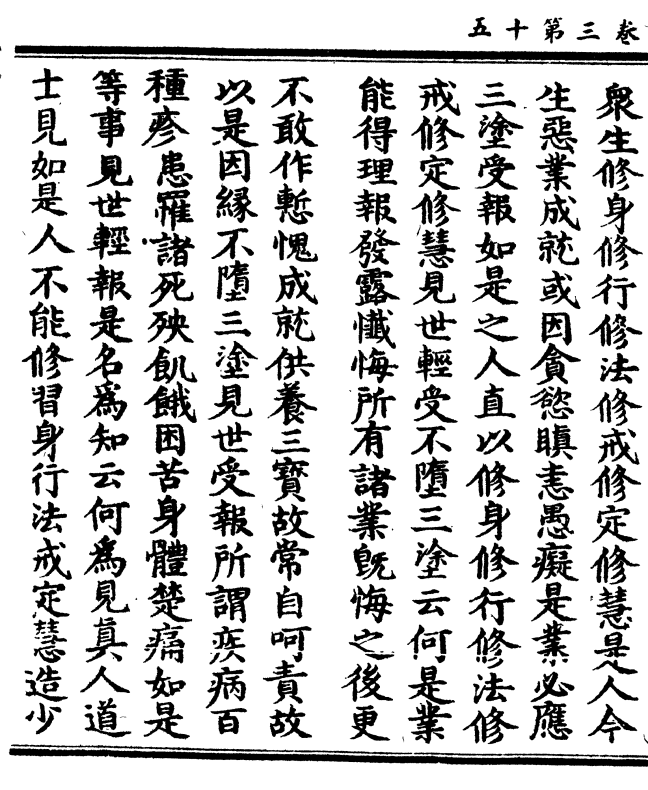 卷三第十五
衆生修身修行修法修戒修定修慧是人今
生惡業成就或因貪慾瞋恚愚癡是業必應
三塗受報如是之人直以修身修行修法修
戒修定修慧見世輕受不墮三塗云何是業
能得理報發露懺悔所有諸業旣悔之後更
不敢作慙愧成就供養三寶故常自呵責故
以是因緣不墮三塗見世受報所謂疾病百
種疹患羅諸死殃飢餓困苦身體楚痛如是
等事見世輕報是名爲知云何爲見眞人道
士見如是人不能修習身行法戒定慧造少